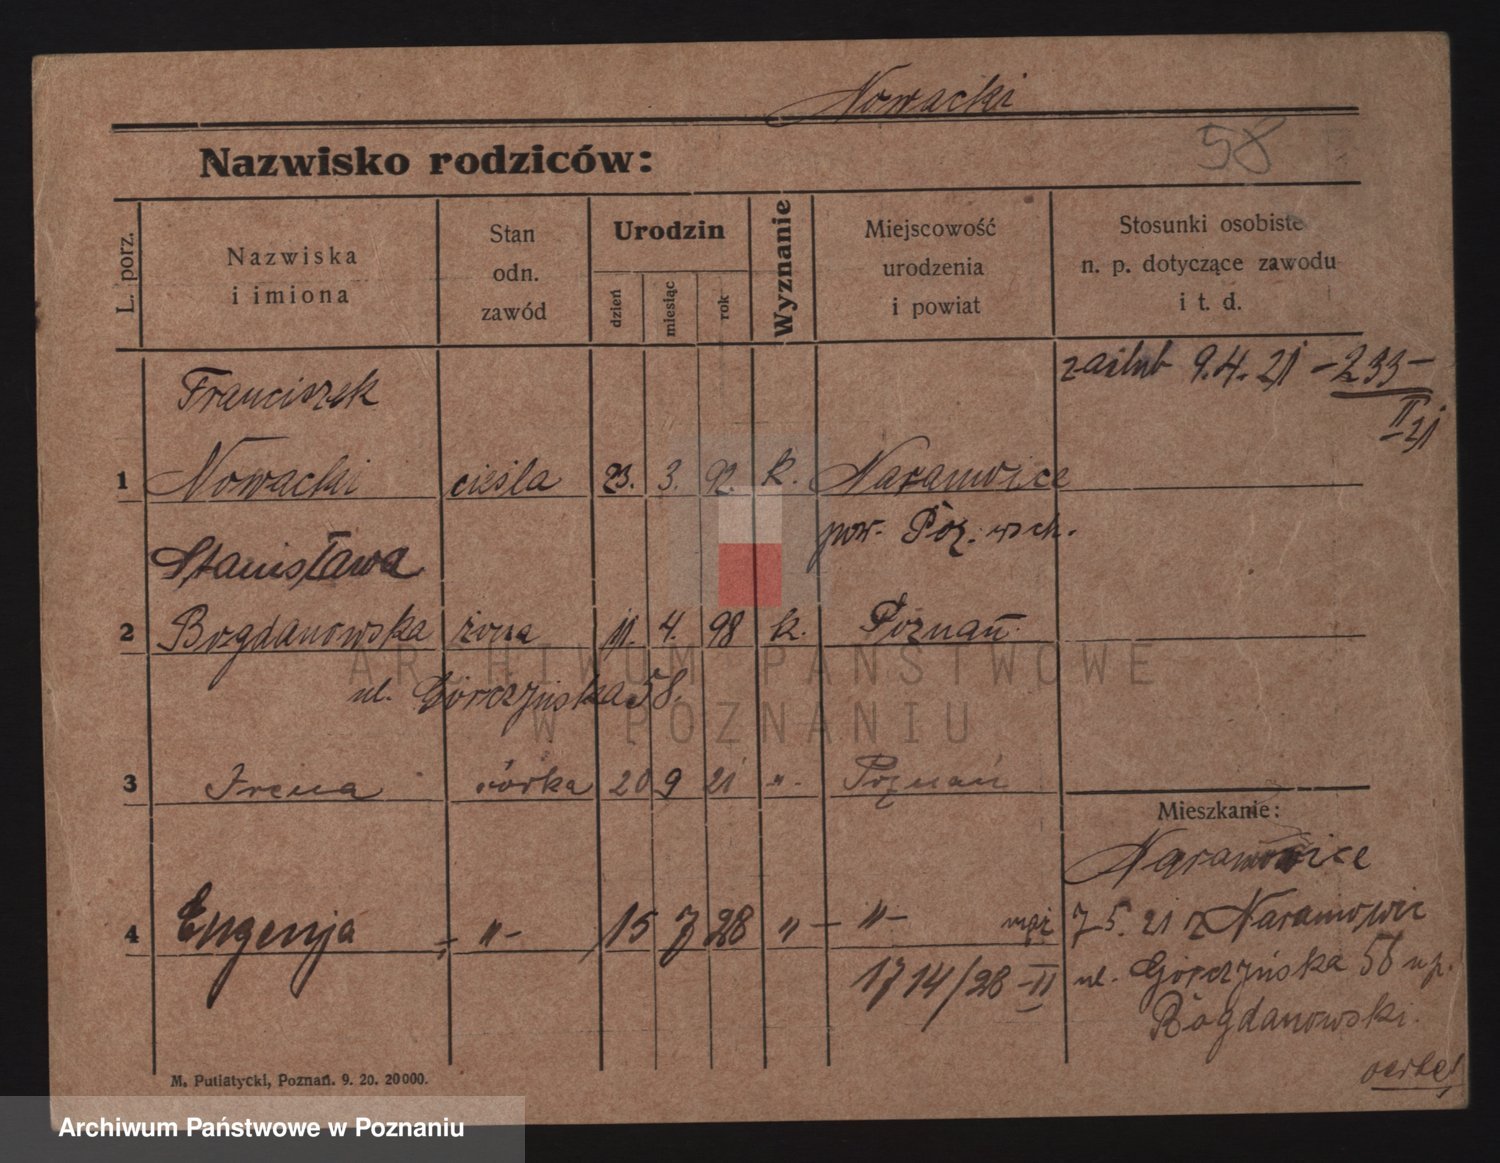 Nowacki
Nazwisko rodziców:
58
L. porz.
Nazwiska
i imiona
Stan
odn.
zawód
Urodzin
dzień
miesiąc
rok
Wyznanie
Miejscowość
urodzenia
i powiat
Stosunki osobiste
n. p. dotyczące zawodu
i t. d.
zaślub 9.4.21 – 233 –
II
21
Franciszek
1 Nowacki cieśla 23. 3. 92. k. Naramowice
pow. Poz. wsch.
Stanisława
2 Bogdanowska żona 11. 4. 98 k. Poznań.
ul. Górczyńska 58.
3 Irena córka 20 9 21 „ Poznań
Mieszkanie:
Naramowice
4 Eugenja – „ – 15 7 28 „ – „ –
7 5. 21 z Naramowic
1714/28 – II
ul. Górczyńska 58 u p.
Bogdanowski.
M. Putiatycki, Poznań. 9. 20. 20000.
ARCHIWUM PAŃSTWOWE
W POZNANIU
Archiwum Państwowe w Poznaniu